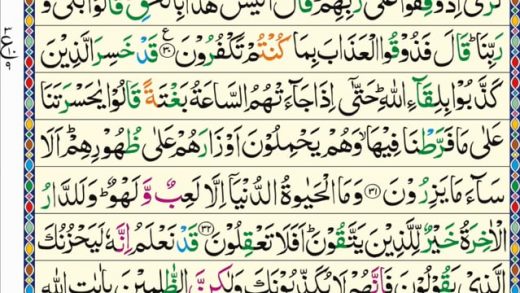 تَرٰٓى اِذْ وُقِفُوْا عَلٰى رَبِّهِمْ ؕ قَالَ اَلَيْسَ هٰذَا بِالْحَقِّ ؕ قَالُوْا بَلٰى وَ
رَبِّنَا ؕ قَالَ فَذُوْقُوا الْعَذَابَ بِمَا كُنْتُمْ تَكْفُرُوْنَ ﴿۳۰﴾ قَدْ خَسِرَ الَّذِيْنَ
كَذَّبُوْا بِلِقَآءِ اللّٰهِ ؕ حَتّٰٓى اِذَا جَآءَتْهُمُ السَّاعَةُ بَغْتَةً قَالُوْا يٰحَسْرَتَنَا
عَلٰى مَا فَرَّطْنَا فِيْهَا ۙ وَهُمْ يَحْمِلُوْنَ اَوْزَارَهُمْ عَلٰى ظُهُوْرِهِمْ ؕ اَلَا
سَآءَ مَا يَزِرُوْنَ ﴿۳۱﴾ وَمَا الْحَيٰوةُ الدُّنْيَآ اِلَّا لَعِبٌ وَّلَهْوٌ ؕ وَلَلدَّارُ
الْاٰخِرَةُ خَيْرٌ لِّلَّذِيْنَ يَتَّقُوْنَ ؕ اَفَلَا تَعْقِلُوْنَ ﴿۳۲﴾ قَدْ نَعْلَمُ اِنَّهٗ لَيَحْزُنُكَ
الَّذِيْ يَقُوْلُوْنَ فَاِنَّهُمْ لَا يُكَذِّبُوْنَكَ وَلٰكِنَّ الظّٰلِمِيْنَ بِاٰيٰتِ اللّٰهِ